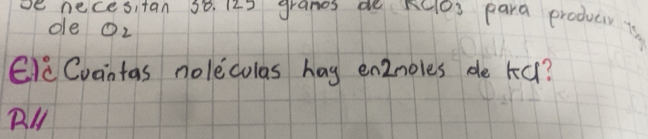 se necesitan 38.125 gramos de KClO3 para producir
de O2
E) ¿Cuantas moléculas hay en 2 moles de KCl?
R//